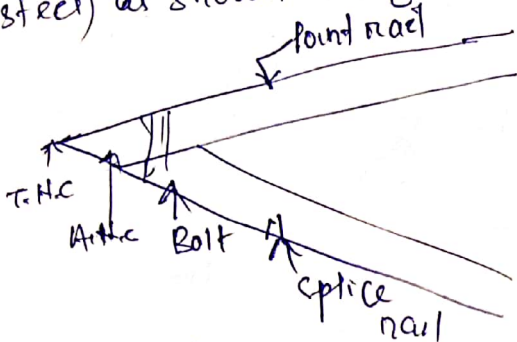 steel) as shown
Point rael
T.N.C
A.N.c
Bolt
splice
rail